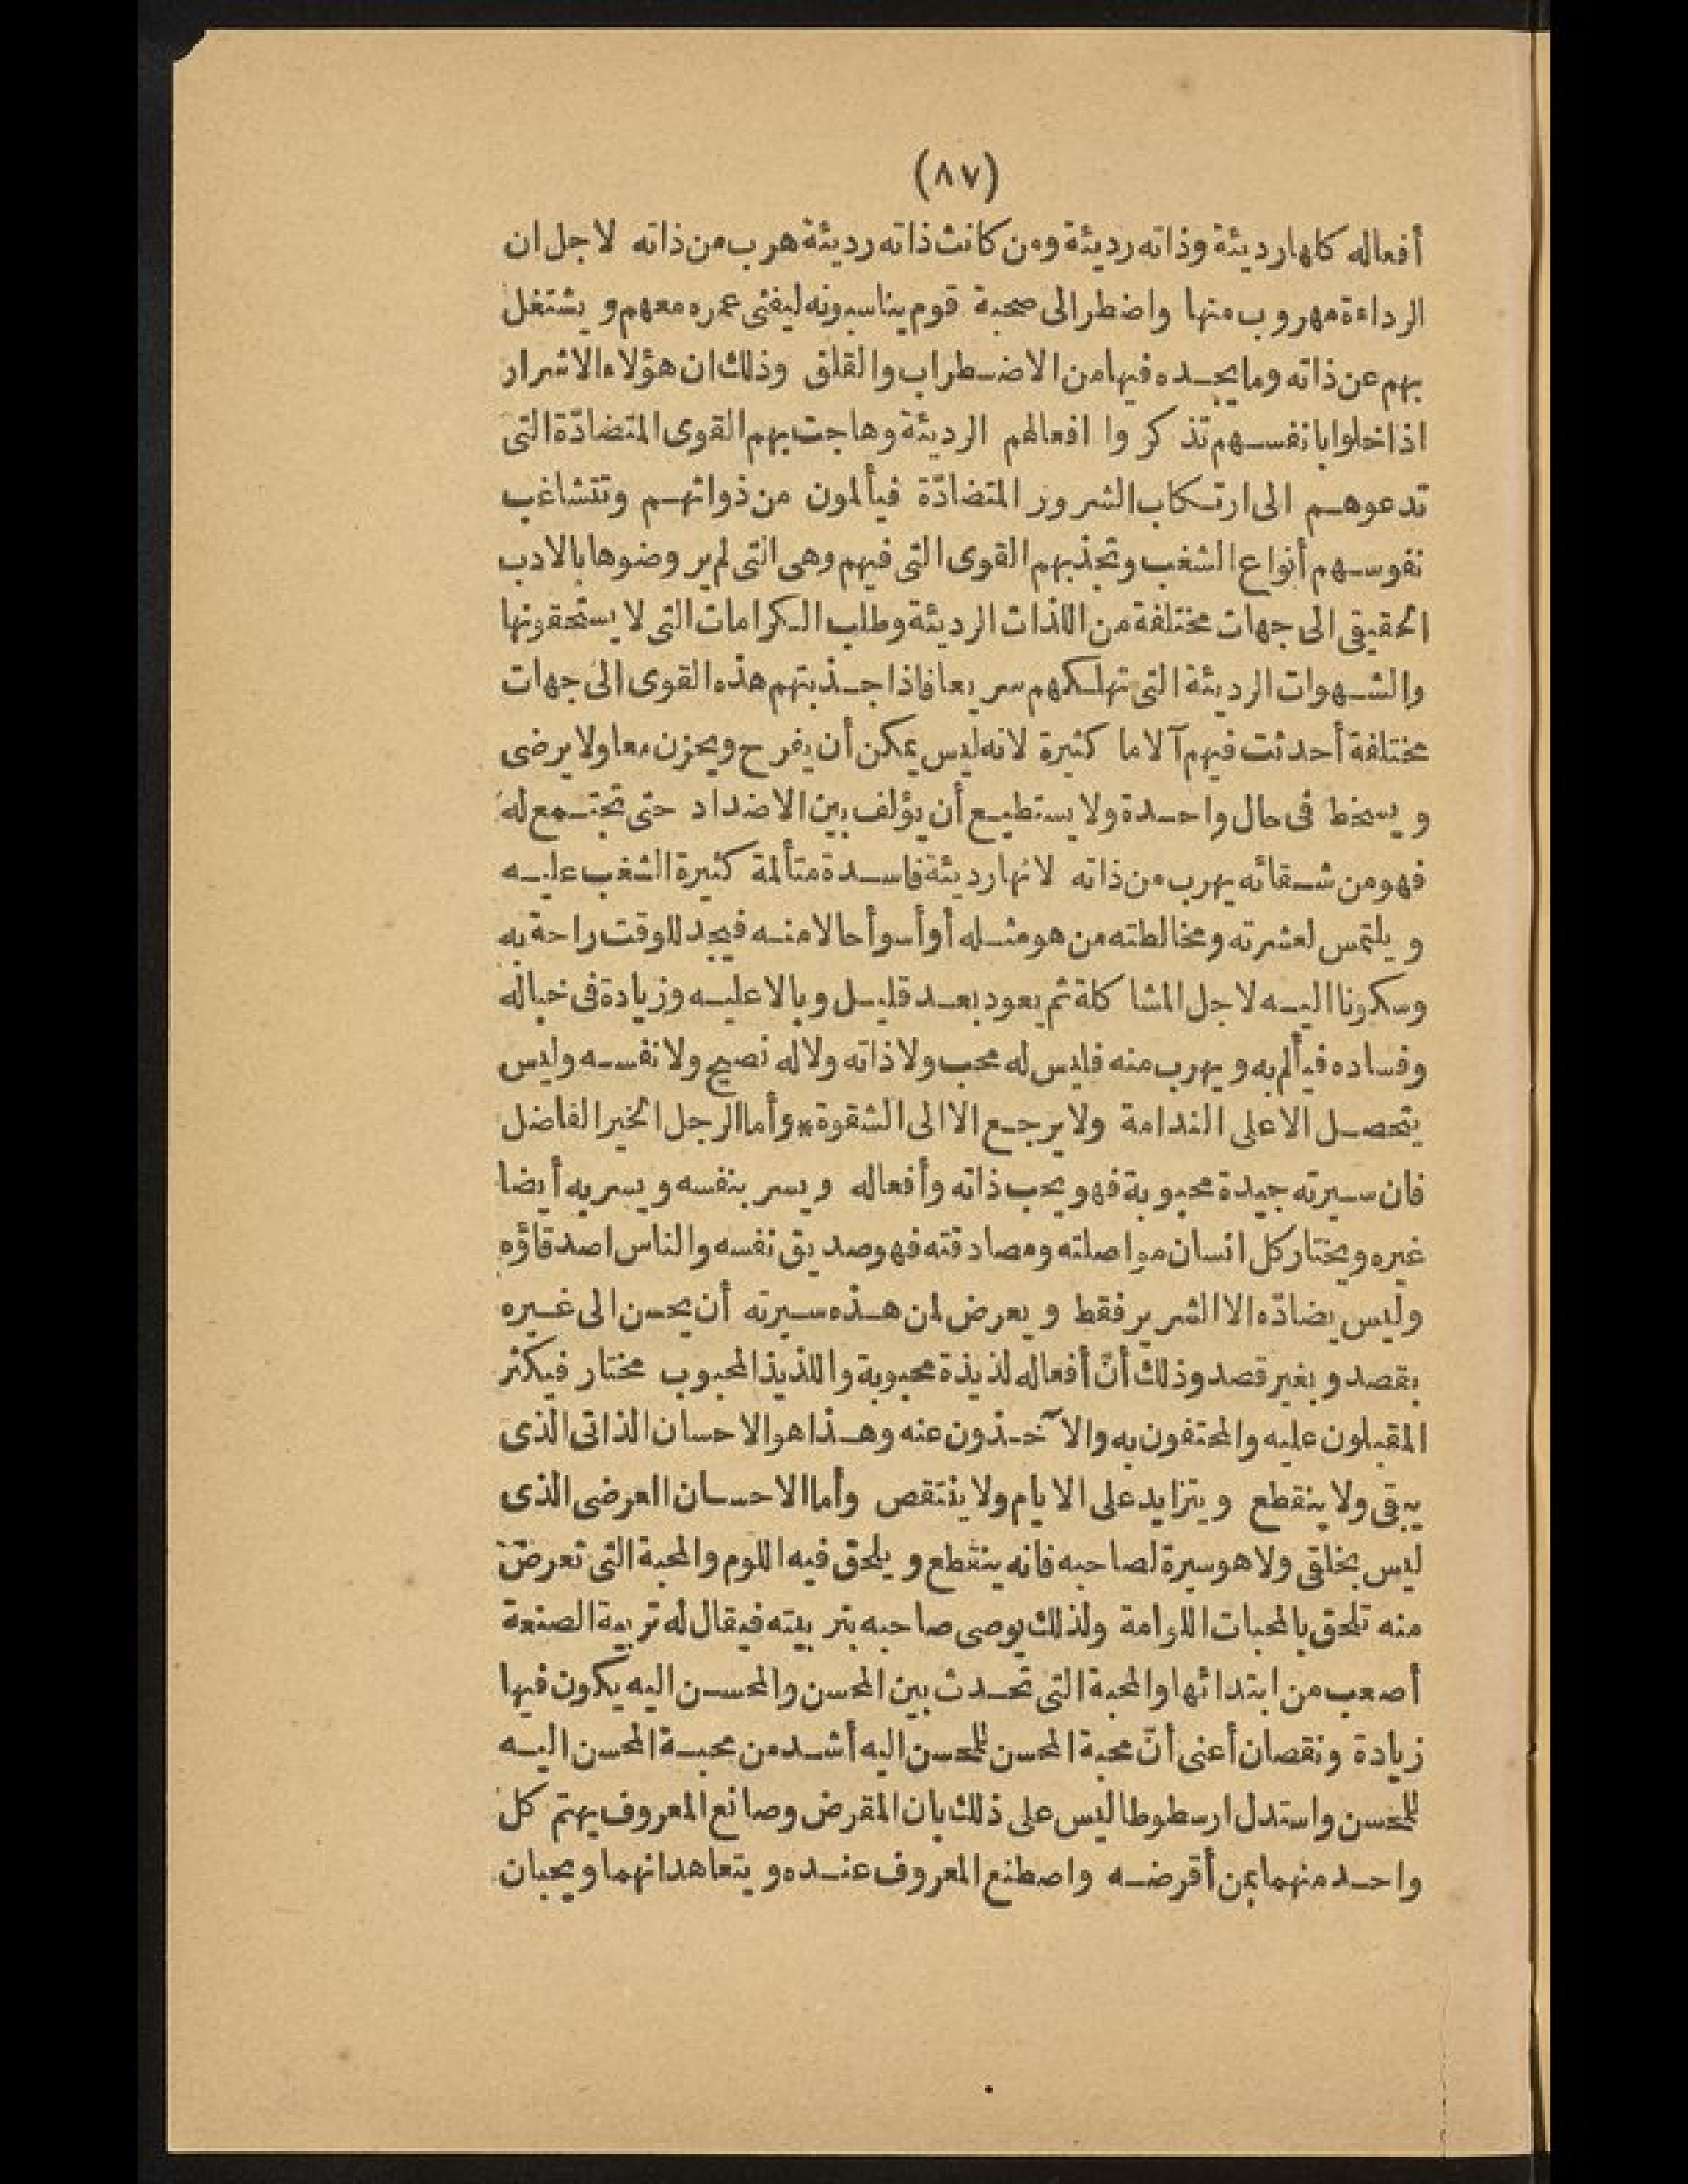 (٨٧)
أفعاله كلها رديئة وذاته رديئة ومن كانت ذاته رديئة هرب من ذاته لاجل ان
الرداءة مهروب منها واضطر الى صحبة قوم يناسبونه ليفنى عمره معهم ويشتغل
بهم عن ذاته وما يجده فيها من الاضطراب والقلق وذلك ان هؤلاء الاشرار
اذا خلوا بانفسهم تذكروا افعالهم الرديئة وهاجت بهم القوى المتضادّة التى
تدعوهم الى ارتكاب الشرور المتضادّة فيألمون من ذواتهم وتتشاغب
نفوسهم أنواع الشغب وتجذبهم القوى التى فيهم وهى التى لم يروضوها بالادب
الحقيقى الى جهات مختلفة من اللذات الرديئة وطلب الكرامات التى لا يستحقونها
والشهوات الرديئة التى تهلكهم سريعا فاذا جذبتهم هذه القوى الى جهات
مختلفة أحدثت فيهم آلاما كثيرة لانه ليس يمكن أن يفرح ويحزن معا ولا يرضى
ويسخط فى حال واحدة ولا يستطيع أن يؤلف بين الاضداد حتى تجتمع له
فهو من شقائه يهرب من ذاته لانها رديئة فاسدة متألمة كثيرة الشغب عليه
ويلتمس لعشرته ومخالطته من هو مثله أو أسوأ حالا منه فيجد للوقت راحة به
وسكونا اليه لاجل المشاكلة ثم يعود بعد قليل وبالا عليه وزيادة فى خباله
وفساده فيألم به ويهرب منه فليس له محب ولا ذاته ولا له نصيح ولا نفسه وليس
يتحصل الا على الندامة ولا يرجع الا الى الشقوة * وأما الرجل الخير الفاضل
فان سيرته جيدة محبوبة فهو يحب ذاته وأفعاله ويسر بنفسه ويسر به أيضا
غيره ويختار كل انسان مواصلته ومصادقته فهو صديق نفسه والناس اصدقاؤه
وليس يضادّه الا الشرير فقط ويعرض لمن هذه سيرته أن يحسن الى غيره
بقصد وبغير قصد وذلك أنّ أفعاله لذيذة محبوبة واللذيذ المحبوب مختار فيكثر
المقبلون عليه والمحتفون به والآخذون عنه وهذا هو الاحسان الذاتى الذى
يبقى ولا ينقطع ويتزايد على الايام ولا ينتقص وأما الاحسان العرضى الذى
ليس بخلقى ولا هو سيرة لصاحبه فانه ينقطع ويلحق فيه اللوم والمحبة التى تعرض
منه تلحق بالمحبات اللوامة ولذلك يوصى صاحبه بتربيته فيقال له تربية الصنعة
أصعب من ابتدائها والمحبة التى تحدث بين المحسن والمحسن اليه يكون فيها
زيادة ونقصان أعنى أنّ محبة المحسن للمحسن اليه أشد من محبة المحسن اليه
للمحسن واستدل ارسطوطاليس على ذلك بان المقرض وصانع المعروف يهتم كل
واحد منهما بمن أقرضه واصطنع المعروف عنده ويتعاهدانهما ويحبان